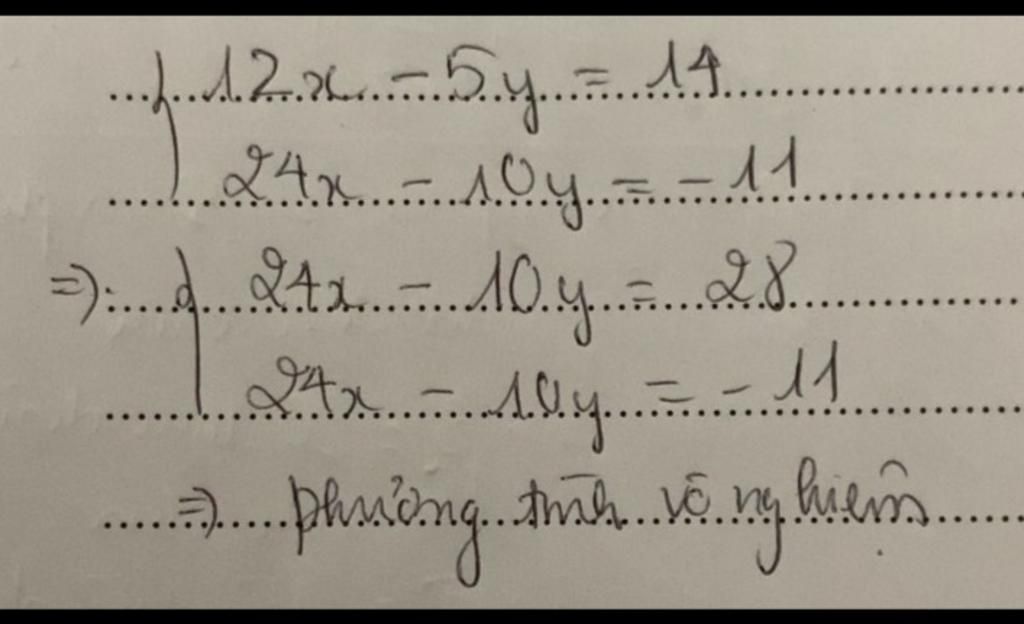 { 12x - 5y = 14
24x - 10y = -11
=> { 24x - 10y = 28
24x - 10y = -11
=> phương trình vô nghiệm